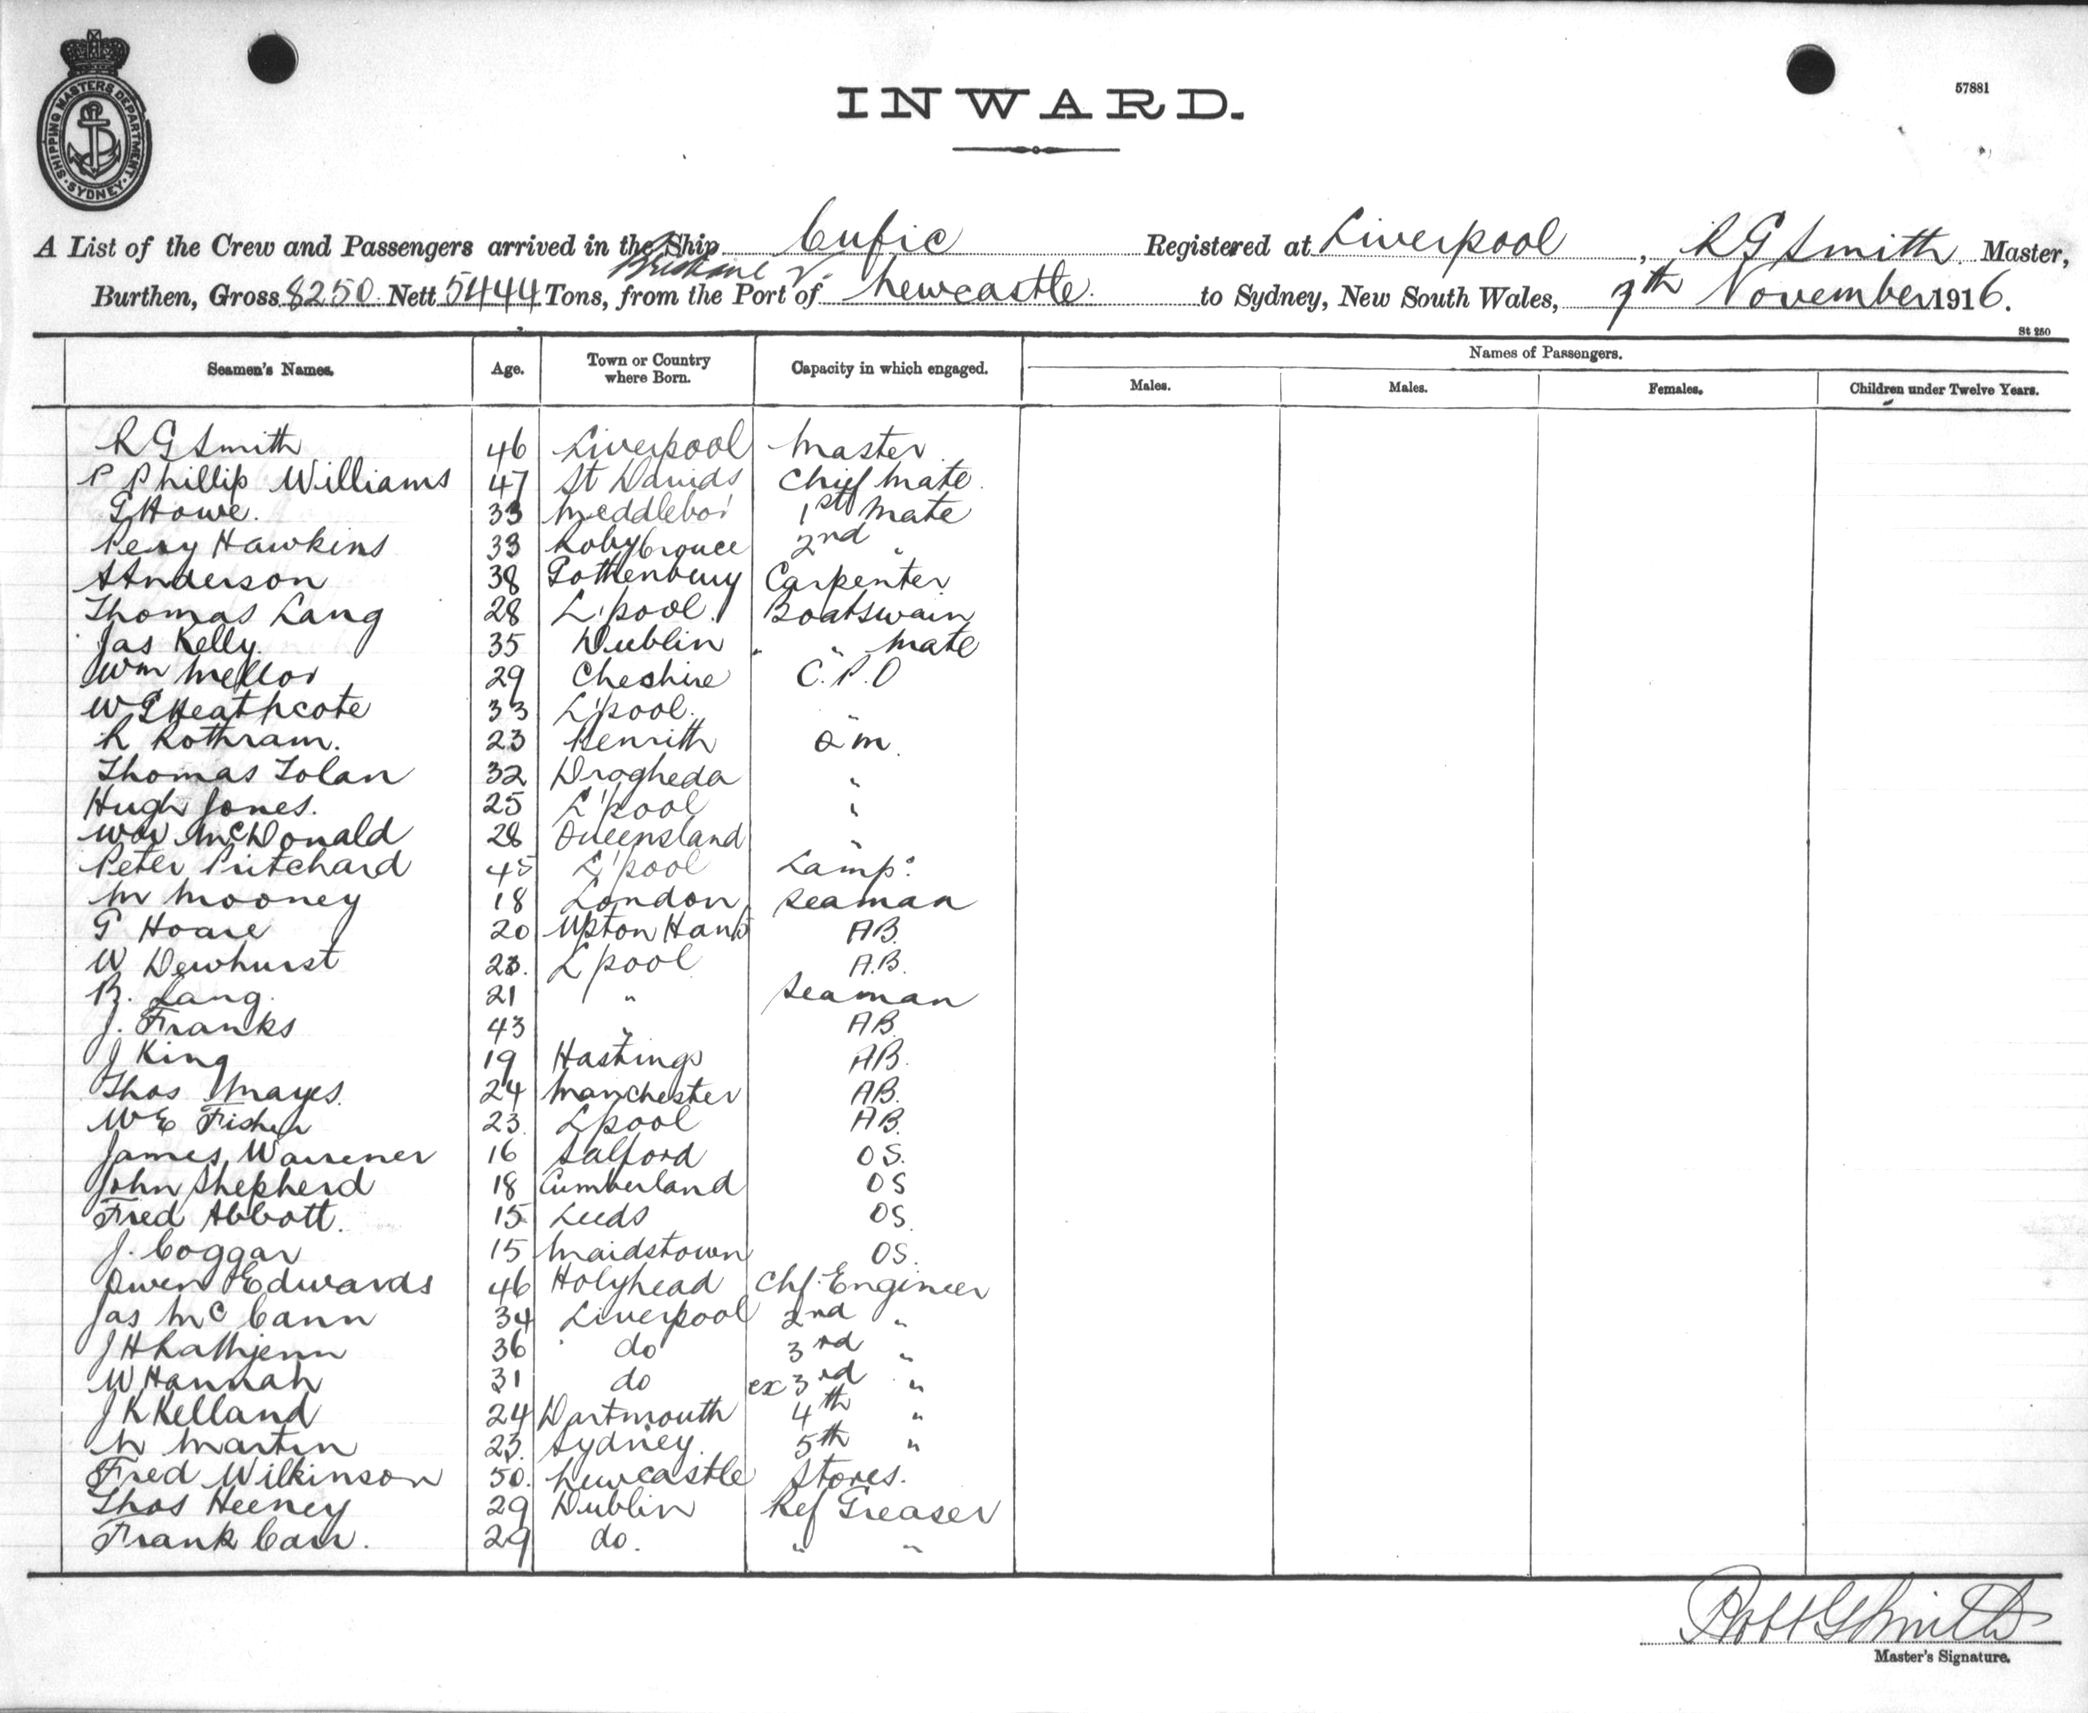 SHIPPING MASTERS DEPARTMENT. SYDNEY.
57881
INWARD.
A List of the Crew and Passengers arrived in the Ship Cufic Registered at Liverpool, R G Smith Master,
Brisbane v.
Burthen, Gross 8250 Nett 5444 Tons, from the Port of Newcastle. to Sydney, New South Wales, 7th November 1916.
St 250
Seamen's Names. Age. Town or Country where Born. Capacity in which engaged. Names of Passengers.
Males. Males. Females. Children under Twelve Years.
R G Smith 46 Liverpool Master
P Phillip Williams 47 St Davids Chief Mate.
G Howe. 33 Middlebor' 1st Mate
Percy Hawkins 33 2nd "
A Anderson 38 Gothenburg Carpenter
Thomas Lang 28 L'pool. Boatswain
Jas Kelly. 35 Dublin " " Mate
Wm Mellor 29 Cheshire C.P.O
W G Heathcote 33 L'pool. "
R Rothram. 23 Penrith Q M.
Thomas Tolan 32 Drogheda "
Hugh Jones. 25 L'pool "
Wm McDonald 28 Queensland "
Peter Pritchard 45 L'pool Lamp:
M Mooney 18 London Seaman
G Hoare 20 Upton Hants AB.
W Dewhurst 23. L'pool A.B.
R. Lang. 21 " Seaman
J. Franks 43 " AB.
J King 19 Hastings AB.
Thos Mayes. 24 Manchester AB.
W E Fisher 23. L'pool AB.
James Warrener 16 Salford OS.
John Shepherd 18 Cumberland OS
Fred Abbott. 15 Leeds OS.
J. Coggar 15 Maidstown OS.
Owen Edwards 46 Holyhead Chf. Engineer
Jas McCann 34 Liverpool 2nd "
J H Rathjenn 36 do 3rd "
W Hannah 31 do ex 3rd "
J R Kelland 24 Dartmouth 4th "
N Martin 23. Sydney. 5th "
Fred Wilkinson 50. Newcastle Stores.
Thos Heeney 29 Dublin Ref Greaser
Frank Carr. 29 do. " "
Robt G Smith
Master's Signature.